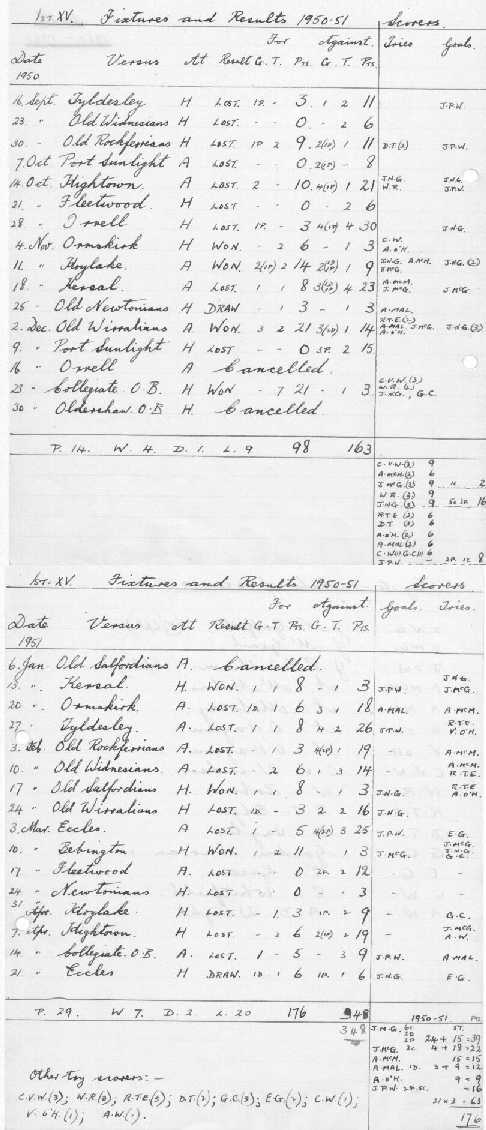 1st. XV. Fixtures and Results 1950-51 Scorers.
For Against. Tries Goals.
Date Versus At Result G. T. Pts. G. T. Pts.
1950
16 Sept Tyldesley H LOST. 1P. - 3 . 1 2 11 J.P.W.
23 " Old Widnesians H LOST. - - 0 - 2 6
30 - Old Rockferrians H LOST. 1P 2 9 2(1P) 1 11 D.T.(2) J.P.W.
7 Oct Port Sunlight A LOST. - - 0 2(1P) - 8
14 Oct. Hightown. A LOST. 2 - 10 4(1P) 1 21 J.N.G. W.R. J.N.G. J.P.W.
21 " Fleetwood. H LOST - - 0 - 2 6
28 - Orrell H LOST. 1P. - 3 4(1P) 4 30 J.N.G.
4 Nov. Ormskirk H WON. - 2 6 - 1 3 C.W. A.O'H.
11 " Hoylake. A WON. 2(1P) 2 14 1 9 J.N.G. A.McM. J.McG. J.N.G. (2)
18 - Kersal. A LOST. 1 1 8 4 23 A.McM. J.McG. J McG.
25 - Old Newtonians H DRAW - 1 3 - 1 3 A.MAL.
2 Dec. Old Wirralians A WON. 3 2 21 3(1P) 1 14 R.T.E.(2) A.MAL J.McG. A.O'H. J.N.G.(3)
9 " Port Sunlight H LOST - - 0 3P. 2 15
16 " Orrell A Cancelled.
23 " Collegiate O.B. H WON - 7 21 - 1 3 C.V.W.(3) W.R.(2) J.N.G., G.C.
30 - Oldershaw O.B H Cancelled.
P. 14. W. 4. D. 1. L. 9 98 163
C.V.W.(3) 9
A.McM.(2) 6
J.McG.(3) 9 2
W.R.(3) 9
J.N.G.(3) 9 16
R.T.E (2) 6
D.T (2) 6
A.O'H.(2) 6
A.MAL(2) 6
6
J.P.W. - 8
1st. XV. Fixtures and Results 1950-51 Scorers.
For Against. Goals. Tries.
Date Versus At Result G. T. Pts. G. T. Pts.
1951
6. Jan Old Salfordians A. Cancelled.
13. " Kersal. H WON. 1 1 8 - 1 3 J.P.W. J.N.G. J.McG.
20 " Ormskirk A. LOST. 1P. 1 6 3 1 18 A.MAL. A McM.
27 " Tyldesley. A LOST. 1 1 8 4 2 26 J.P.W. R.T.E. V.O'H.
3. Feb. Old Rockferrians A LOST. 1 3 4(1P) 1 19 - A.McM.
10. " Old Widnesians A LOST. - 2 6 1 3 14 - A.McM. R.T.E.
17 " Old Salfordians H. WON. 1 1 8 - 1 3 J.N.G. R.T.E A.O'H.
24 " Old Wirralians H LOST 1P. - 3 2 2 16 J.N.G.
3. Mar. Eccles. A LOST. 1 - 5 3 25 J.P.W. E.G.
10. " Bebington H WON. 1 2 11 1 3 J.McG. J.McG. J.N.G. G.C.
17 " Fleetwood A. LOST 0 2P. 2 12 - -
24 " Newtonians H LOST 0 - 3 - -
31 Hoylake. H LOST. - 1 3 1P. 2 9 - G.C.
7. Apr. Hightown. H LOST - 2 6 2(1P) 2 19 - J.McG. A.W.
14 " Collegiate O.B. A. LOST. 1 - 5 - 3 9 J.P.W. A MAL.
21 " Eccles H DRAW. 1P. 1 6 1P. 1 6 J.N.G. E.G.
P. 29. W 7. D. 2. L. 20 176 348
348
1950-51 Pts.
J.N.G. 24 + 15 = 39
J.McG. 2c 4 + 18 = 22
A.McM. 15 = 15
A.MAL. 1P. 3 + 9 = 12
A.O'H. 9 = 9
J.P.W. = 16
21 x 3 = 63
176
Other try scorers:-
C.V.W.(3); W.R.(3); R.T.E(5); D.T.(2); G.C.(3); E.G.(2); C.W.(1);
V.O'H.(1); A.W.(1).